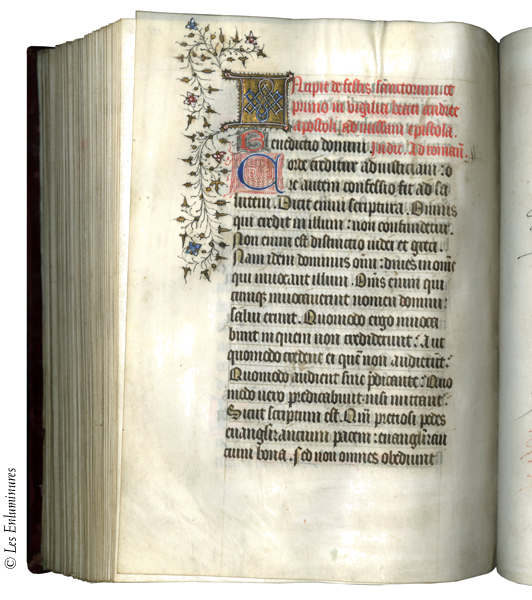 Incipit de festis sanctorum: et
primo in vigilia beati andree
apostoli ad missam epistola.
Benedictio domini. In die. Ad roman.
Corde creditur ad iusticiam: o
re autem confessio fit ad sa
lutem. Dicit enim scriptura. Omnis
qui credit in illum: non confundetur.
Non enim est distinctio iudei et greci.
Nam idem dominus omnium: dives in omnes
qui invocant illum. Omnis enim qui
cumque invocaverit nomen domini:
salvus erit. Quomodo ergo invoca
bunt in quem non crediderunt: Aut
quomodo credent ei quem non audierunt:
Quomodo audient sine predicante: Quo
modo vero predicabunt nisi mittantur:
Sicut scriptum est. Quam preciosi pedes
euangelizantium pacem: euangelizan
cium bona. Sed non omnes obediunt
© Les Enluminures